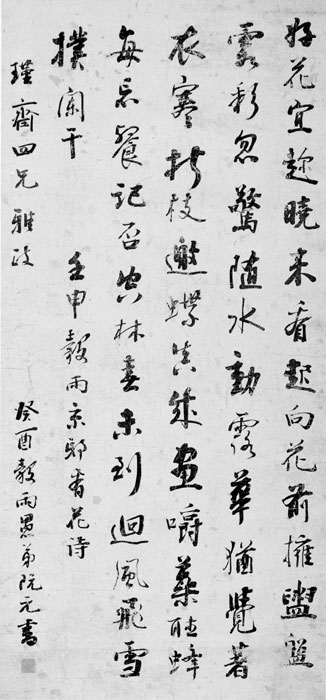 好花宜趁曉来看起向花前擁盥盤
霞彩忽驚随水動露華猶覺著
衣寒折枝邀蝶真成畫嚼蕊聴蜂
每忘餐記否空林春未到迴風飛雪
撲闌干 壬申穀雨京邸看花詩
瑾齋四兄雅政 癸酉穀雨愚弟阮元書